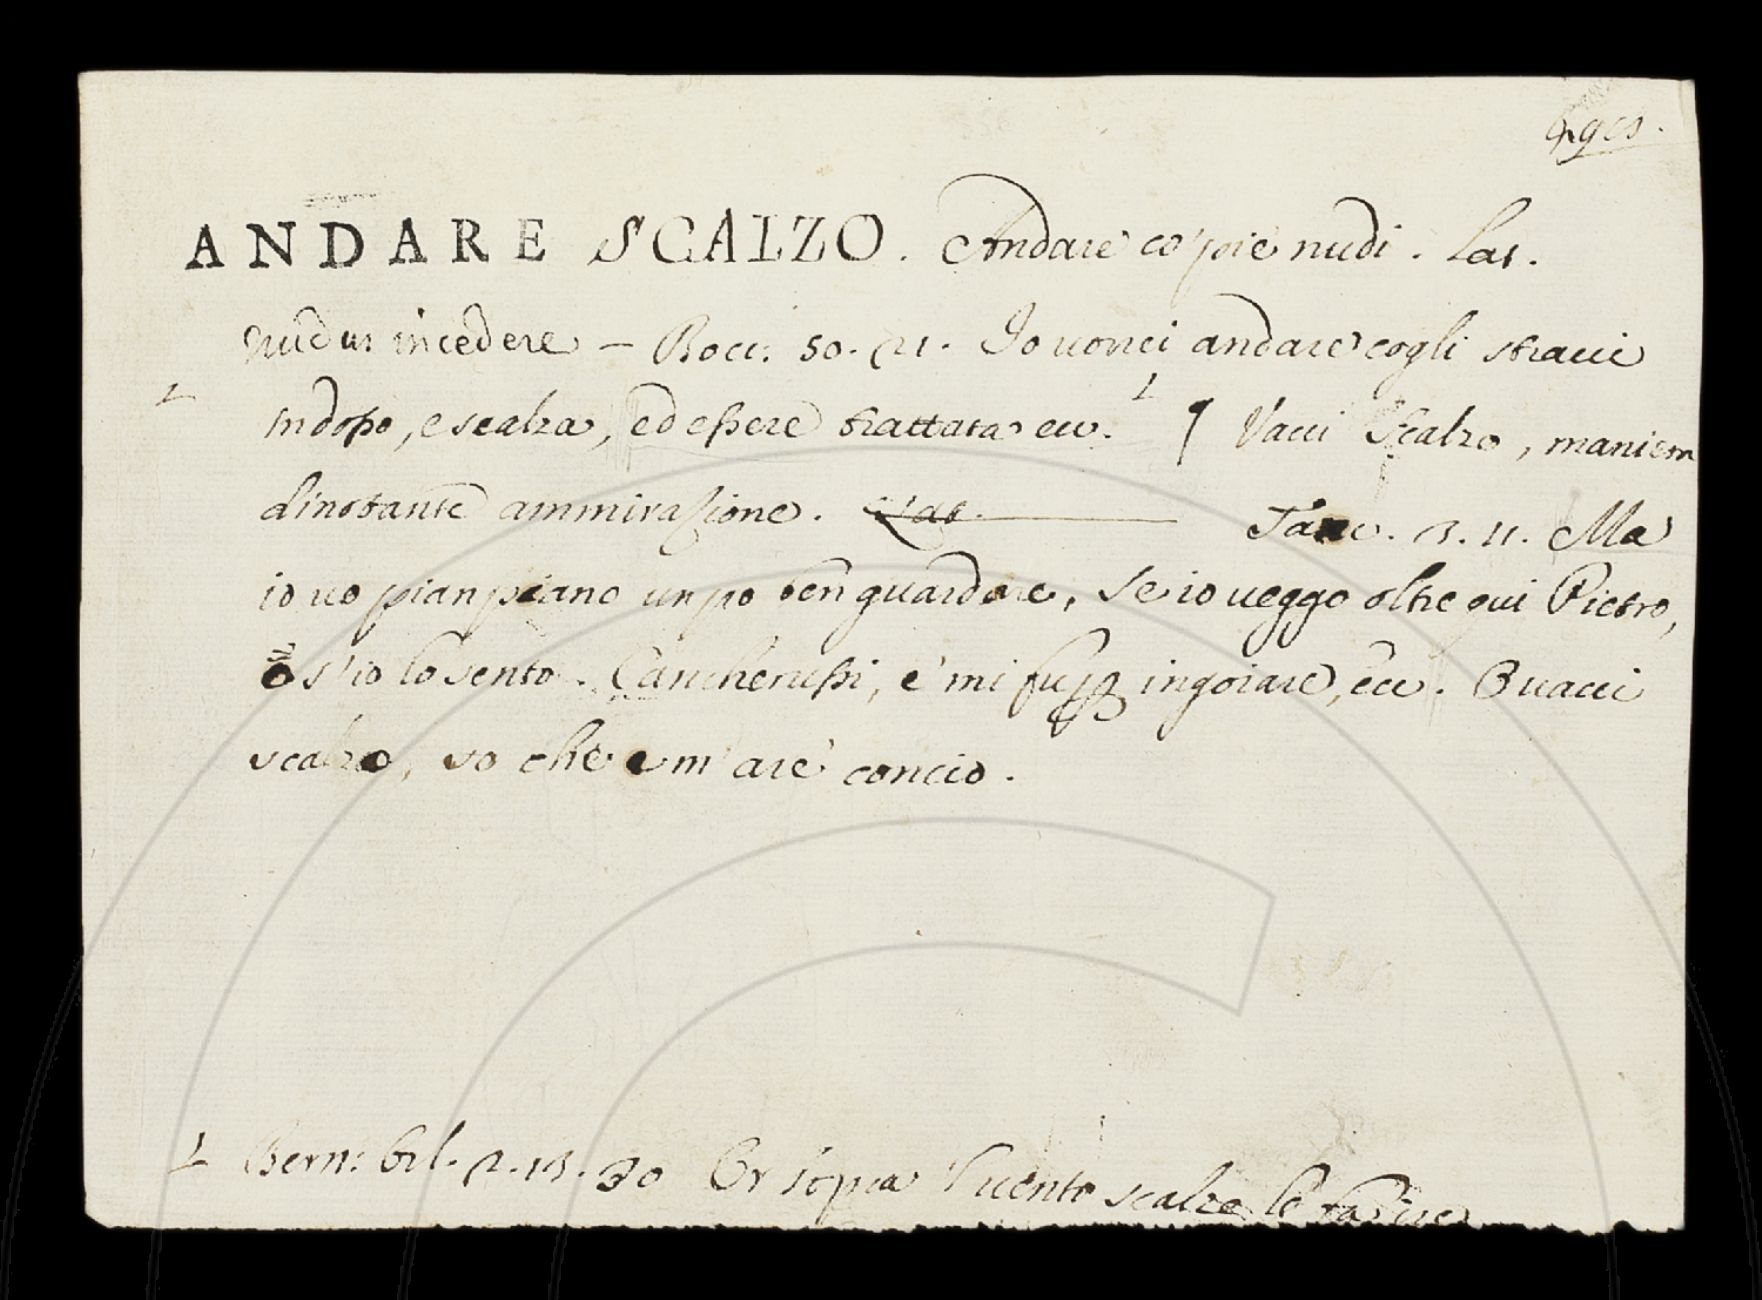 ANDARE SCALZO. Andare co' piè nudi. Lat.
nudus incedere — Bocc: 50. 21. Io vorrei andare cogli stracci
indosso, e scalza, ed essere trattata ecc. ¶ Vacci Scalzo, maniera
dinotante ammirazione. Tanc. 3. 11. Ma
io vo pian piano un po ben guardare, Se io veggo oltre qui Pietro,
o s'io lo sento. Cancherussi, e' mi ingoiare, ecc. O vacci
scalzo, so che e m' are' concio.
Bern: Orl. 2. 13. 30 Or sopra l'uento scalze le